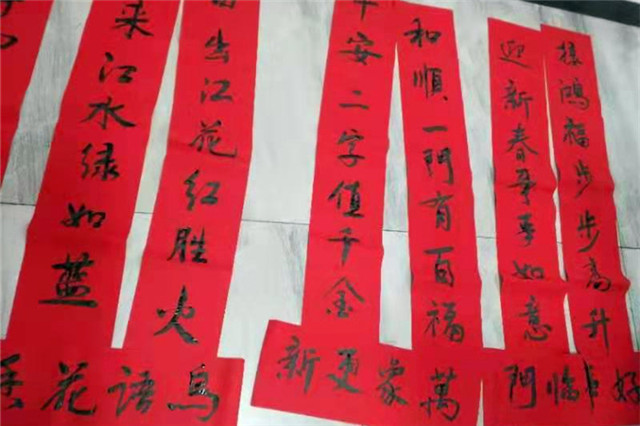 接鴻福步步高升
迎新春事事如意
好事臨門
和順一門有百福
平安二字值千金
萬象更新
出江花红胜火
来江水绿如蓝
鳥語花香